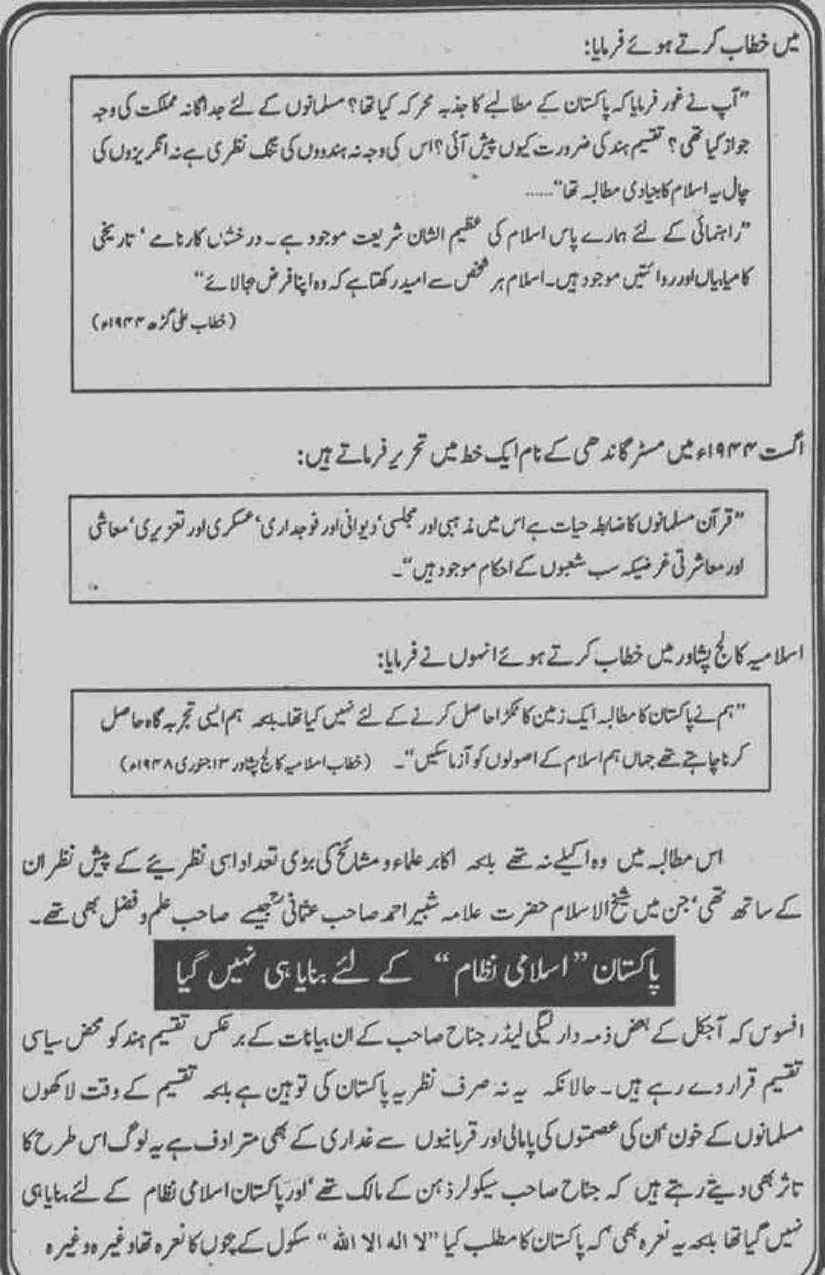 میں خطاب کرتے ہوئے فرمایا:
”آپ نے غور فرمایا کہ پاکستان کے مطالبے کا جذبہ محرکہ کیا تھا؟ مسلمانوں کے لئے جداگانہ مملکت کی وجہ
جواز کیا تھی؟ تقسیم ہند کی ضرورت کیوں پیش آئی؟ اس کی وجہ نہ ہندووں کی تنگ نظری ہے نہ انگریزوں کی
چال یہ اسلام کا بنیادی مطالبہ تھا“.....
”راہنمائی کے لئے ہمارے پاس اسلام کی عظیم الشان شریعت موجود ہے۔ درخشاں کارنامے ‘ تاریخی
کامیابیاں اور روائتیں موجود ہیں۔ اسلام ہر شخص سے امید رکھتا ہے کہ وہ اپنا فرض بجا لائے“
(خطاب علی گڑھ ۱۹۴۴ء)
اگست ۱۹۴۴ء میں مسٹر گاندھی کے نام ایک خط میں تحریر فرماتے ہیں:
”قرآن مسلمانوں کا ضابطہ حیات ہے اس میں مذہبی اور مجلسی‘ دیوانی اور فوجداری‘ عسکری اور تعزیری‘ معاشی
اور معاشرتی غرضیکہ سب شعبوں کے احکام موجود ہیں“۔
اسلامیہ کالج پشاور میں خطاب کرتے ہوئے انہوں نے فرمایا:
”ہم نے پاکستان کا مطالبہ ایک زمین کا ٹکڑا حاصل کرنے کے لئے نہیں کیا تھا۔ بلکہ ہم ایسی تجربہ گاہ حاصل
کرنا چاہتے تھے جہاں ہم اسلام کے اصولوں کو آزما سکیں“۔ (خطاب اسلامیہ کالج پشاور ۱۳ جنوری ۱۹۴۸ء)
اس مطالبہ میں وہ اکیلے نہ تھے بلکہ اکابر علماء و مشائخ کی بڑی تعداد اسی نظریئے کے پیش نظر ان
کے ساتھ تھی‘ جن میں شیخ الاسلام حضرت علامہ شبیر احمد صاحب عثمانیؒ جیسے صاحب علم و فضل بھی تھے۔
پاکستان ”اسلامی نظام“ کے لئے بنایا ہی نہیں گیا
افسوس کہ آجکل کے بعض ذمہ دار لیگی لیڈر جناح صاحب کے ان بیانات کے برعکس تقسیم ہند کو محض سیاسی
تقسیم قرار دے رہے ہیں۔ حالانکہ یہ نہ صرف نظریہ پاکستان کی توہین ہے بلکہ تقسیم کے وقت لاکھوں
مسلمانوں کے خون‘ ان کی عصمتوں کی پامالی اور قربانیوں سے غداری کے بھی مترادف ہے یہ لوگ اس طرح کا
تاثر بھی دیتے رہتے ہیں کہ جناح صاحب سیکولر ذہن کے مالک تھے‘ اور پاکستان اسلامی نظام کے لئے بنایا ہی
نہیں گیا تھا بلکہ یہ نعرہ بھی‘ کہ پاکستان کا مطلب کیا ”لا الہ الا اللہ“ سکول کے بچوں کا نعرہ تھا وغیرہ وغیرہ